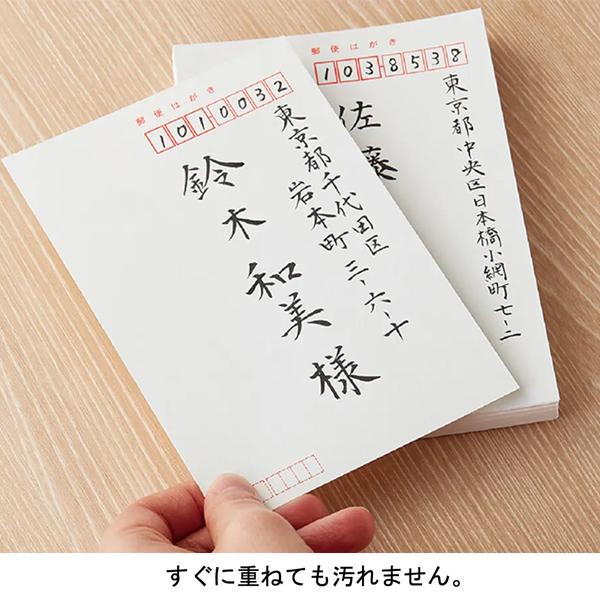 郵便はがき
1010032
東京都千代田区
岩本町三ー六ー十
鈴木和美様
郵便はがき
1038538
東京都中央区日本橋小網町七ー二
佐藤
すぐに重ねても汚れません。